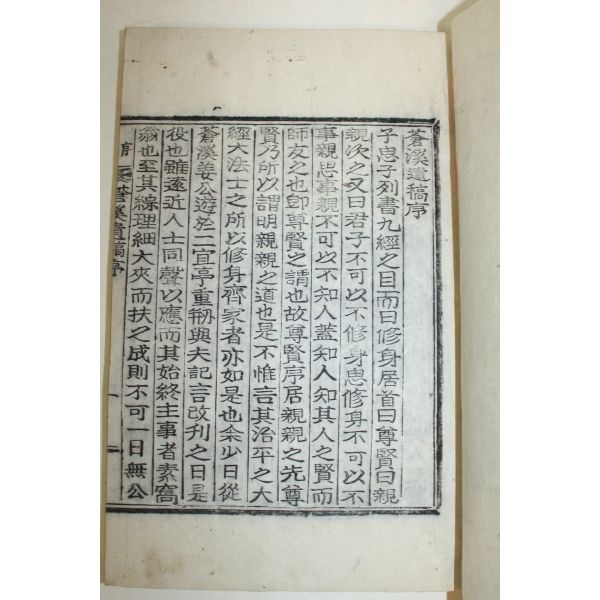 蒼溪遺稿序
子思子列書九經之目而曰修身居首曰尊賢曰親
親次之又曰君子不可以不修身思修身不可以不
事親思事親不可以不知人蓋知人知其人之賢而
師友之也卽尊賢之謂也故尊賢序居親親之先尊
賢乃所以講明親親之道也是不惟言其治平之大
經大法士之所以修身齊家者亦如是也余少日從
蒼溪姜公遊於二宜亭重刱與夫記言改刋之日是
役也雖遠近人士同聲以應而其始終主事者素窩
翁也至其綜理細大夾而扶之成則不可一日無公
蒼溪遺稿序
一